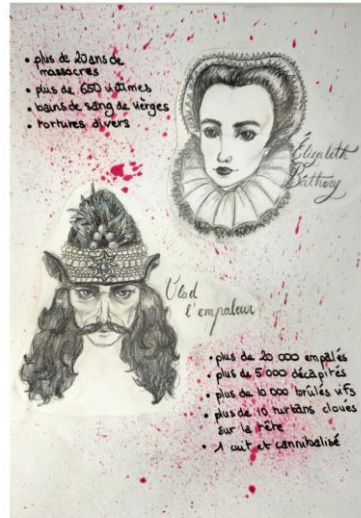 • plus de 20 ans de
massacres
• plus de 650 victimes
• bains de sang de vierges
• tortures divers
Élizabeth
Báthory
Vlad
l'empaleur
• plus de 20 000 empalés
• plus de 5 000 décapités
• plus de 10 000 brûlés vifs
• plus de 10 turbans cloués
sur la tête
• 1 cuit et cannibalisé